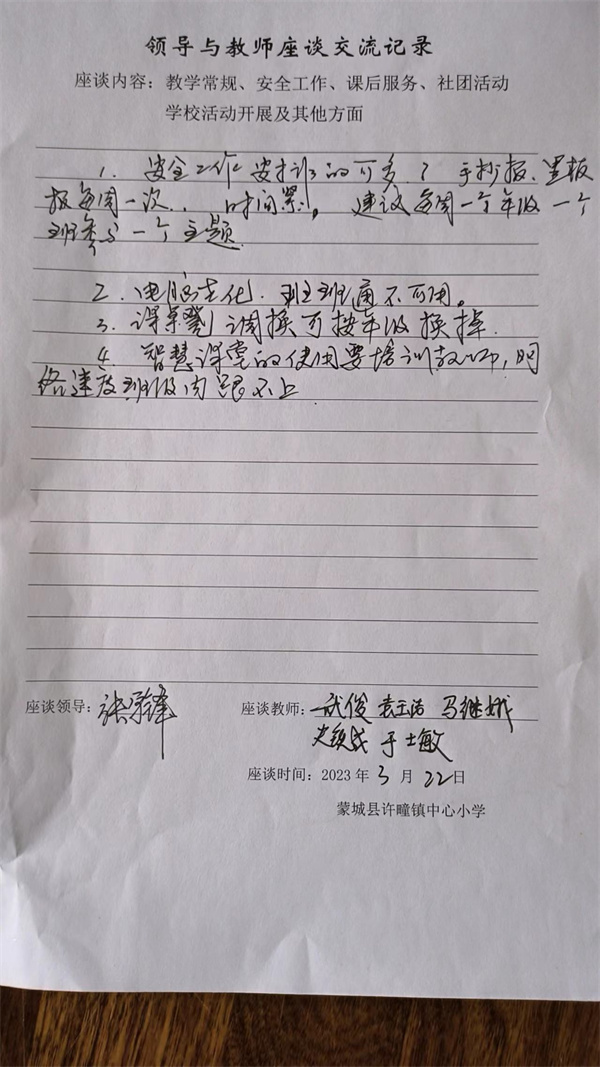 领导与教师座谈交流记录
座谈内容：教学常规、安全工作、课后服务、社团活动
学校活动开展及其他方面
1. 安全工作安排的可多了 手抄报、黑板
报每周一次，时间紧。建议每周一个年级一个
班参与一个主题.
2. 电脑老化. 班班通不可用。
3. 课桌凳调换可按年级换掉.
4. 智慧课堂的使用要培训教师，网
络速度班级内跟不上
座谈领导：张
座谈教师：武俊 袁玉洁 马继娥
于士敏
座谈时间：2023 年 3 月 22 日
蒙城县许疃镇中心小学